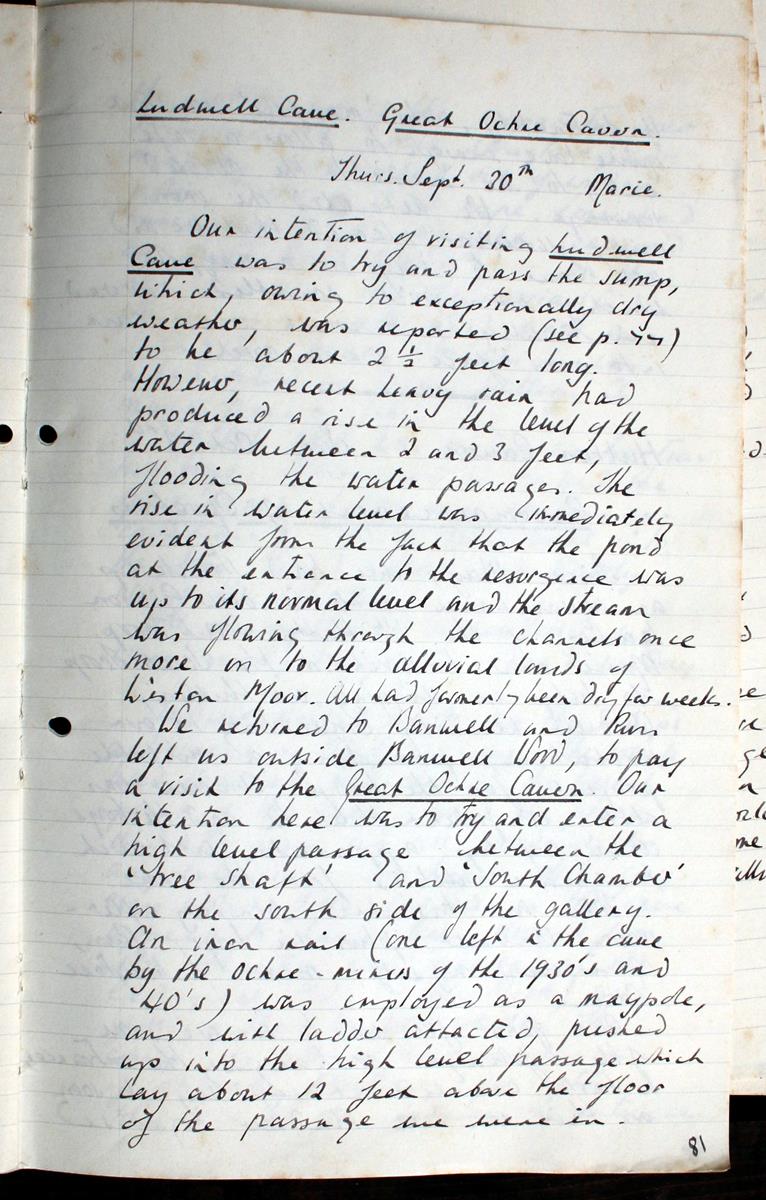 Ludwell Cave. Great Ochre Cavern.
Thurs. Sept. 30th Marie.
Our intention of visiting Ludwell
Cave was to try and pass the sump,
which, owing to exceptionally dry
weather, was reported (see p. 77)
to be about 2 ½ feet long.
However, recent heavy rain had
produced a rise in the level of the
water between 2 and 3 feet,
flooding the water passages. The
rise in water level was immediately
evident from the fact that the pond
at the entrance to the resurgence was
up to its normal level and the stream
was flowing through the channels once
more on to the alluvial lands of
Weston Moor. All had formerly been dry for weeks.
We returned to Banwell and
left us outside Banwell Wood, to pay
a visit to the Great Ochre Cavern. Our
intention here was to try and enter a
high level passage between the
'Tree Shaft' and 'South Chamber'
on the south side of the gallery.
An iron rail (one left in the cave
by the ochre-miners of the 1930's and
40's) was employed as a maypole,
and with ladder attatched, pushed
up into the high level passage which
lay about 12 feet above the floor
of the passage we were in.
81